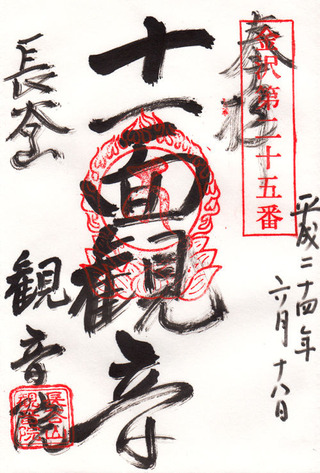 奉拝
金沢第二十五番
平成二十四年
六月十八日
十一面観音
長谷山
観音院